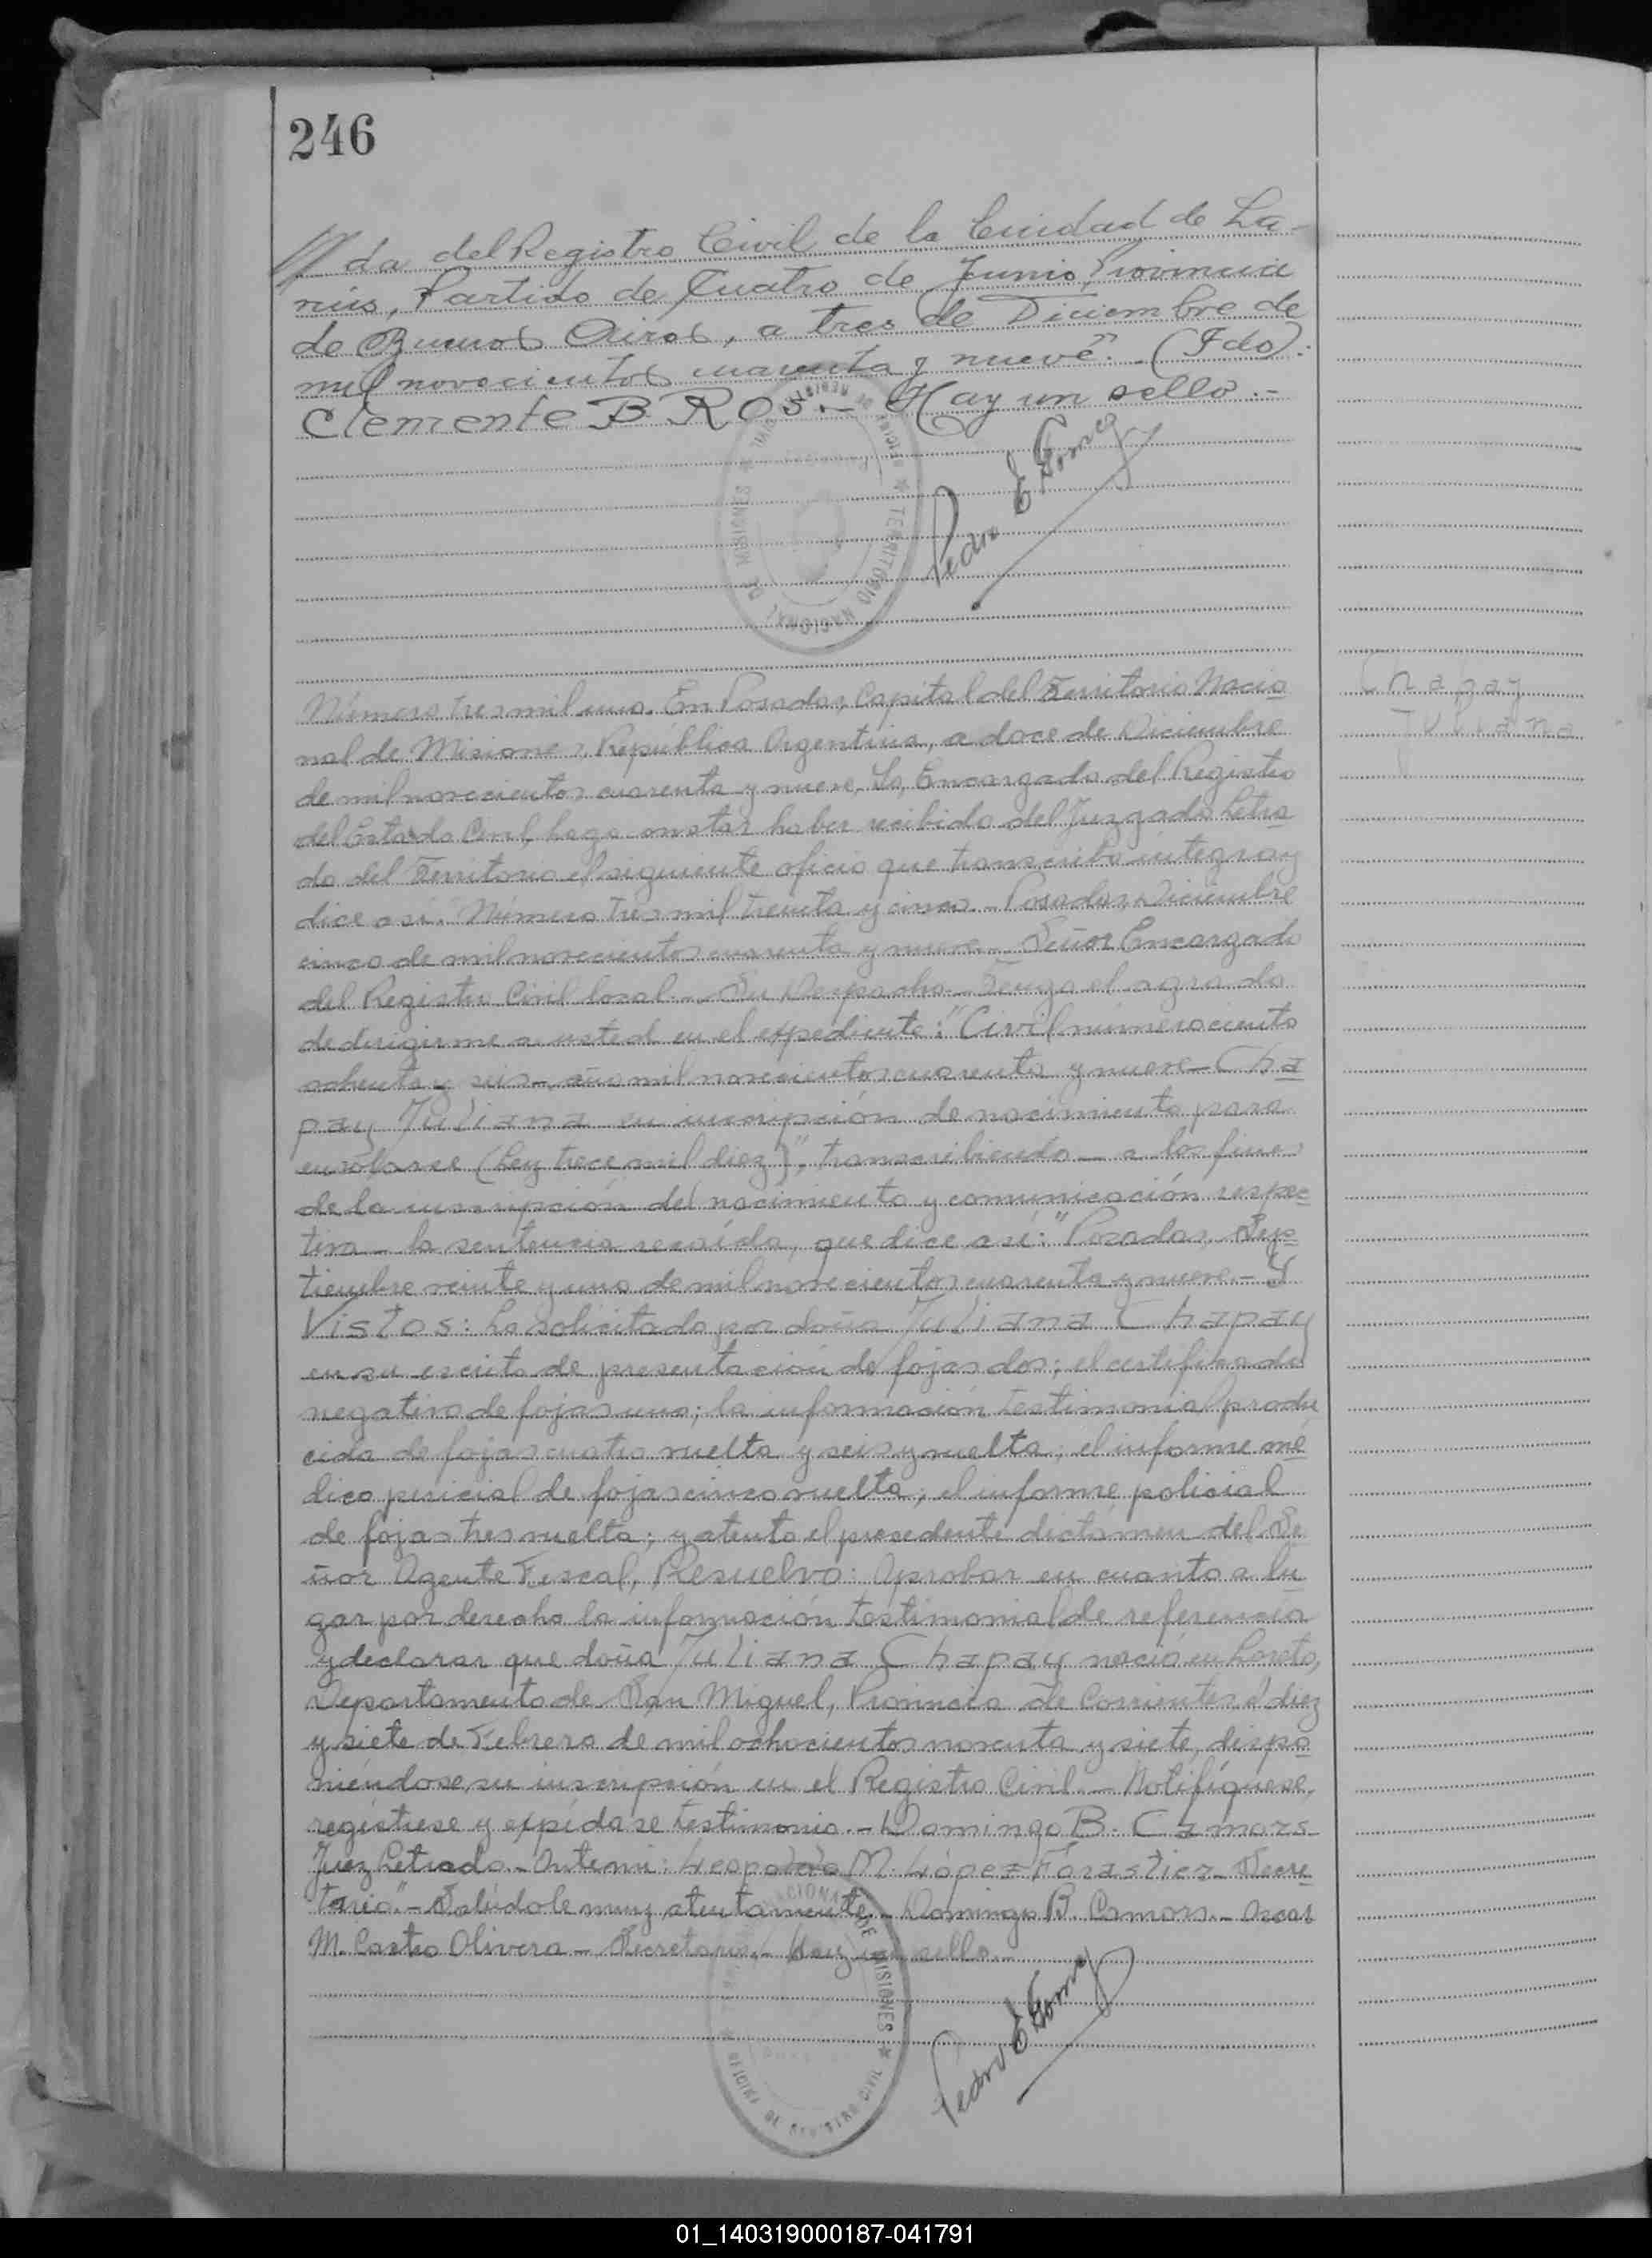 246
da del Registro Civil de la Ciudad de La-
nús, Partido de Cuatro de Junio, Provincia
de Buenos Aires, a tres de Diciembre de
mil novecientos cuarenta y nueve". (Fdo):
Clemente B. Ros.- Hay un sello.-
Pedro E Gomez
Chapay
Juliana
Número tres mil uno. En Posadas, Capital del Territorio Nacio
nal de Misiones, República Argentina, a doce de Diciembre
de mil novecientos cuarenta y nueve, Yo, Encargado del Registro
del Estado Civil, hago constar haber recibido del Juzgado Letra
do del Territorio el siguiente oficio que transcribo íntegro y
dice así: "Número tres mil treinta y cinco.- Posadas, Diciembre
cinco de mil novecientos cuarenta y nueve.- Señor Encargado
del Registro Civil local.- Su Despacho.- Tengo el agrado
de dirigirme a usted en el expediente: "Civil número ciento
ochenta y seis- año mil novecientos cuarenta y nueve- Cha
pay Juliana su inscripción de nacimiento para
enrolarse (Ley trece mil diez)", transcribiendo- a los fines
de la inscripción del nacimiento y comunicación respec
tiva- la sentencia recaída, que dice así: "Posadas, Sep
tiembre veinte y uno de mil novecientos cuarenta y nueve.- Y
Vistos: Lo solicitado por doña Juliana Chapay
en su escrito de presentación de fojas dos; el certificado
negativo de fojas una; la información testimonial produ
cida de fojas cuatro vuelta y seis y vuelta; el informe mé
dico pericial de fojas cinco vuelta; el informe policial
de fojas tres vuelta; y atento el precedente dictámen del Se
ñor Agente Fiscal, Resuelvo: Aprobar en cuanto a lu
gar por derecho la información testimonial de referencia
y declarar que doña Juliana Chapay nació en Loreto,
Departamento de San Miguel, Provincia de Corrientes el diez
y siete de Febrero de mil ochocientos noventa y siete, dispo
niéndose su inscripción en el Registro Civil.- Notifíquese,
regístrese y expídase testimonio.- Domingo B. Camors-
Juez Letrado.- Antemí: Leopoldo M. López Forastier- Secre
tario".- Salúdole muy atentamente.- Domingo B. Camors.- Oscar
M. Castro Olivera- Secretario.- Hay un sello.-
Pedro E Gomez
01_140319000187-041791